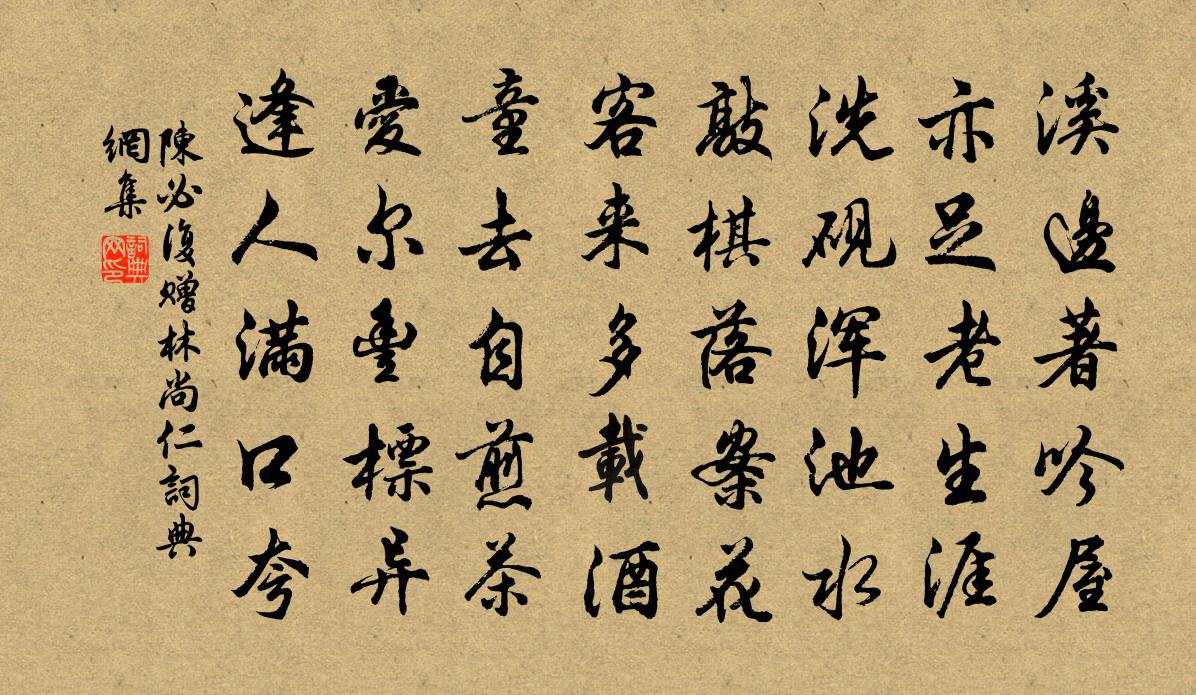 溪邊著吟屋
亦足老生涯
洗硯浑池水
敲棋落案花
客来多載酒
童去自煎茶
愛尔豊標异
逢人滿口夸
陳必復赠林尚仁詞典
網集
詞典網印